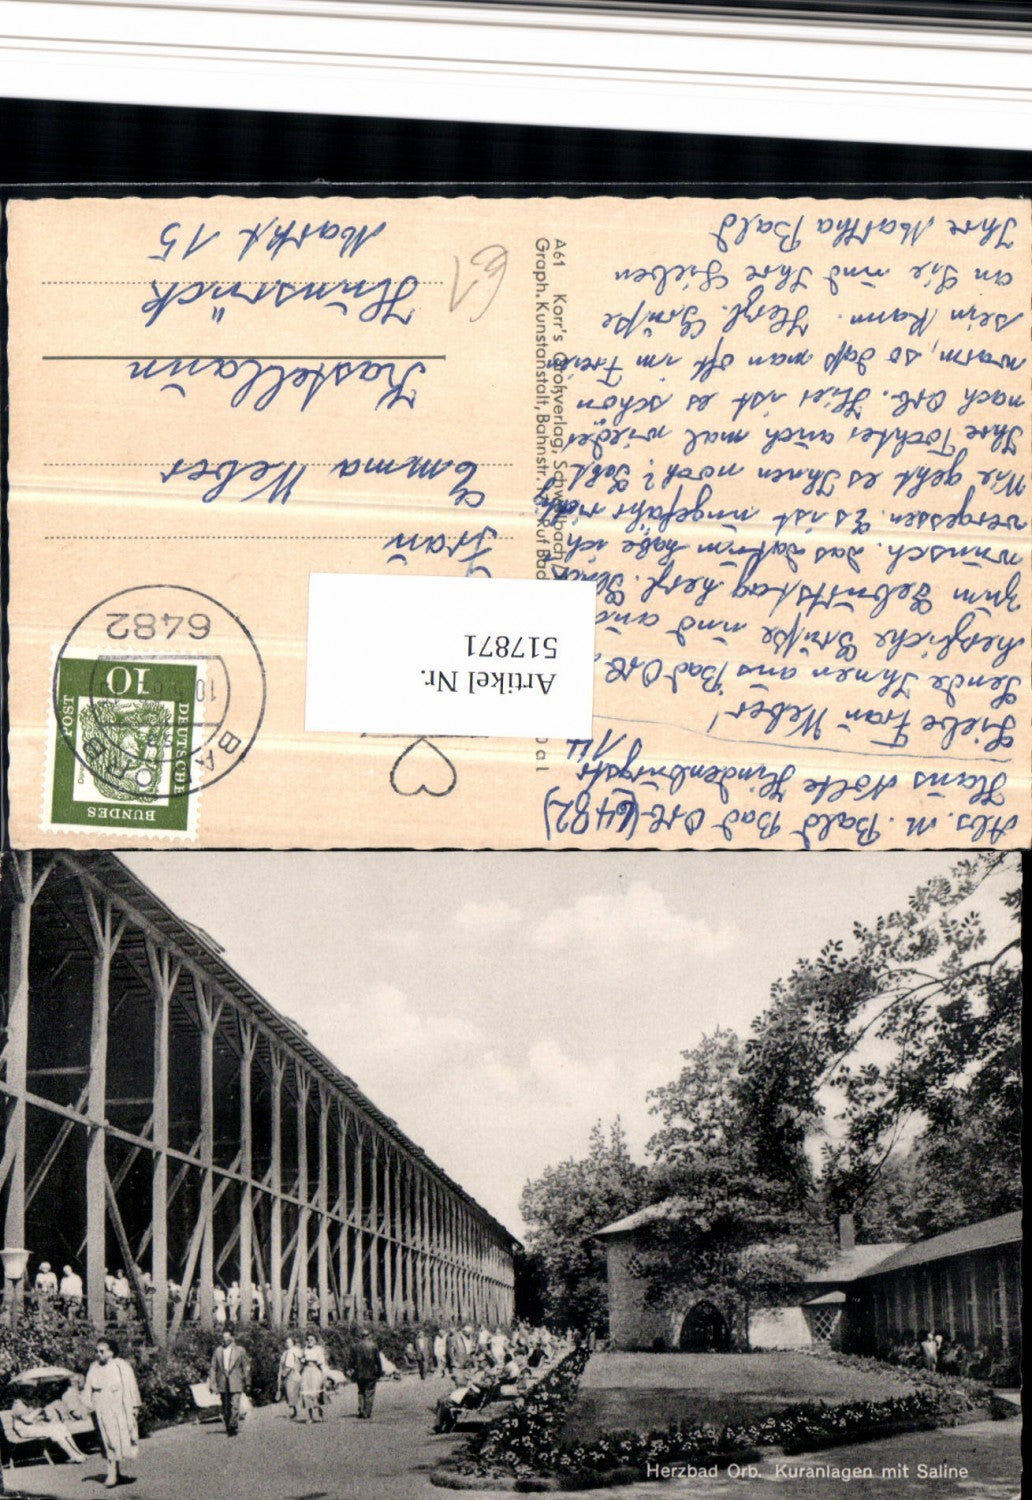 Abs. M. Bald Bad Orb (6482)
Haus Nolte Hindenburgstr
14
Liebe Frau Weber!
Sende Ihnen aus Bad Orb
herzliche Grüße und
zum Geburtstag herzl.
wünsch. Das Datum habe ich
vergessen. Es ist ungefähr
Wie geht es Ihnen noch?
Ihre Tochter auch mal wieder
nach Orb. Hier ist es schon
warm, so daß man oft im Frein
sein kann. Herzl. Grüße
an Sie und Ihre Lieben
Ihre Martha Bald
A61 Korr's Großverlag, Schwalbach
Graph. Kunstanstalt, Bahnstr. Ruf Bad
BUNDES
DEUTSCHE
POST
10
BAD ORB
6482
Artikel Nr.
517871
Frau
Emma Weber
Kastellaun
Hünsrück
Markt 15
Herzbad Orb. Kuranlagen mit Saline